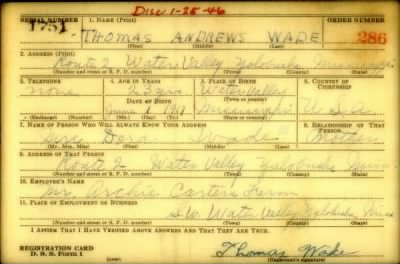 Disc 1-25-46
SERIAL NUMBER 1. NAME (Print) ORDER NUMBER
1731 THOMAS ANDREWS WADE 286
(First) (Middle) (Last)
2. ADDRESS (Print)
Route 2 Water Valley Yalobusha Mississippi
(Number and street or R. F. D. number) (Town) (County) (State)
3. TELEPHONE 4. AGE IN YEARS 5. PLACE OF BIRTH 6. COUNTRY OF CITIZENSHIP
None 23 yrs Water Valley
DATE OF BIRTH (Town or county)
June Mississippi U.S.A.
(Exchange) (Number) (Mo.) (Day) (Yr.) (State or country)
7. NAME OF PERSON WHO WILL ALWAYS KNOW YOUR ADDRESS 8. RELATIONSHIP OF THAT PERSON
Mrs Wade Mother
(Mr., Mrs., Miss) (First) (Middle) (Last)
9. ADDRESS OF THAT PERSON
Route 2 Water Valley Yalobusha Miss
(Number and street or R. F. D. number) (Town) (County) (State)
10. EMPLOYER'S NAME
Mr. Carters Farm
11. PLACE OF EMPLOYMENT OR BUSINESS
S.W. Water Valley Yalobusha Miss
(Number and street or R. F. D. number) (Town) (County) (State)
I AFFIRM THAT I HAVE VERIFIED ABOVE ANSWERS AND THAT THEY ARE TRUE.
REGISTRATION CARD
D. S. S. Form 1 Thomas Wade
(Registrant's signature)